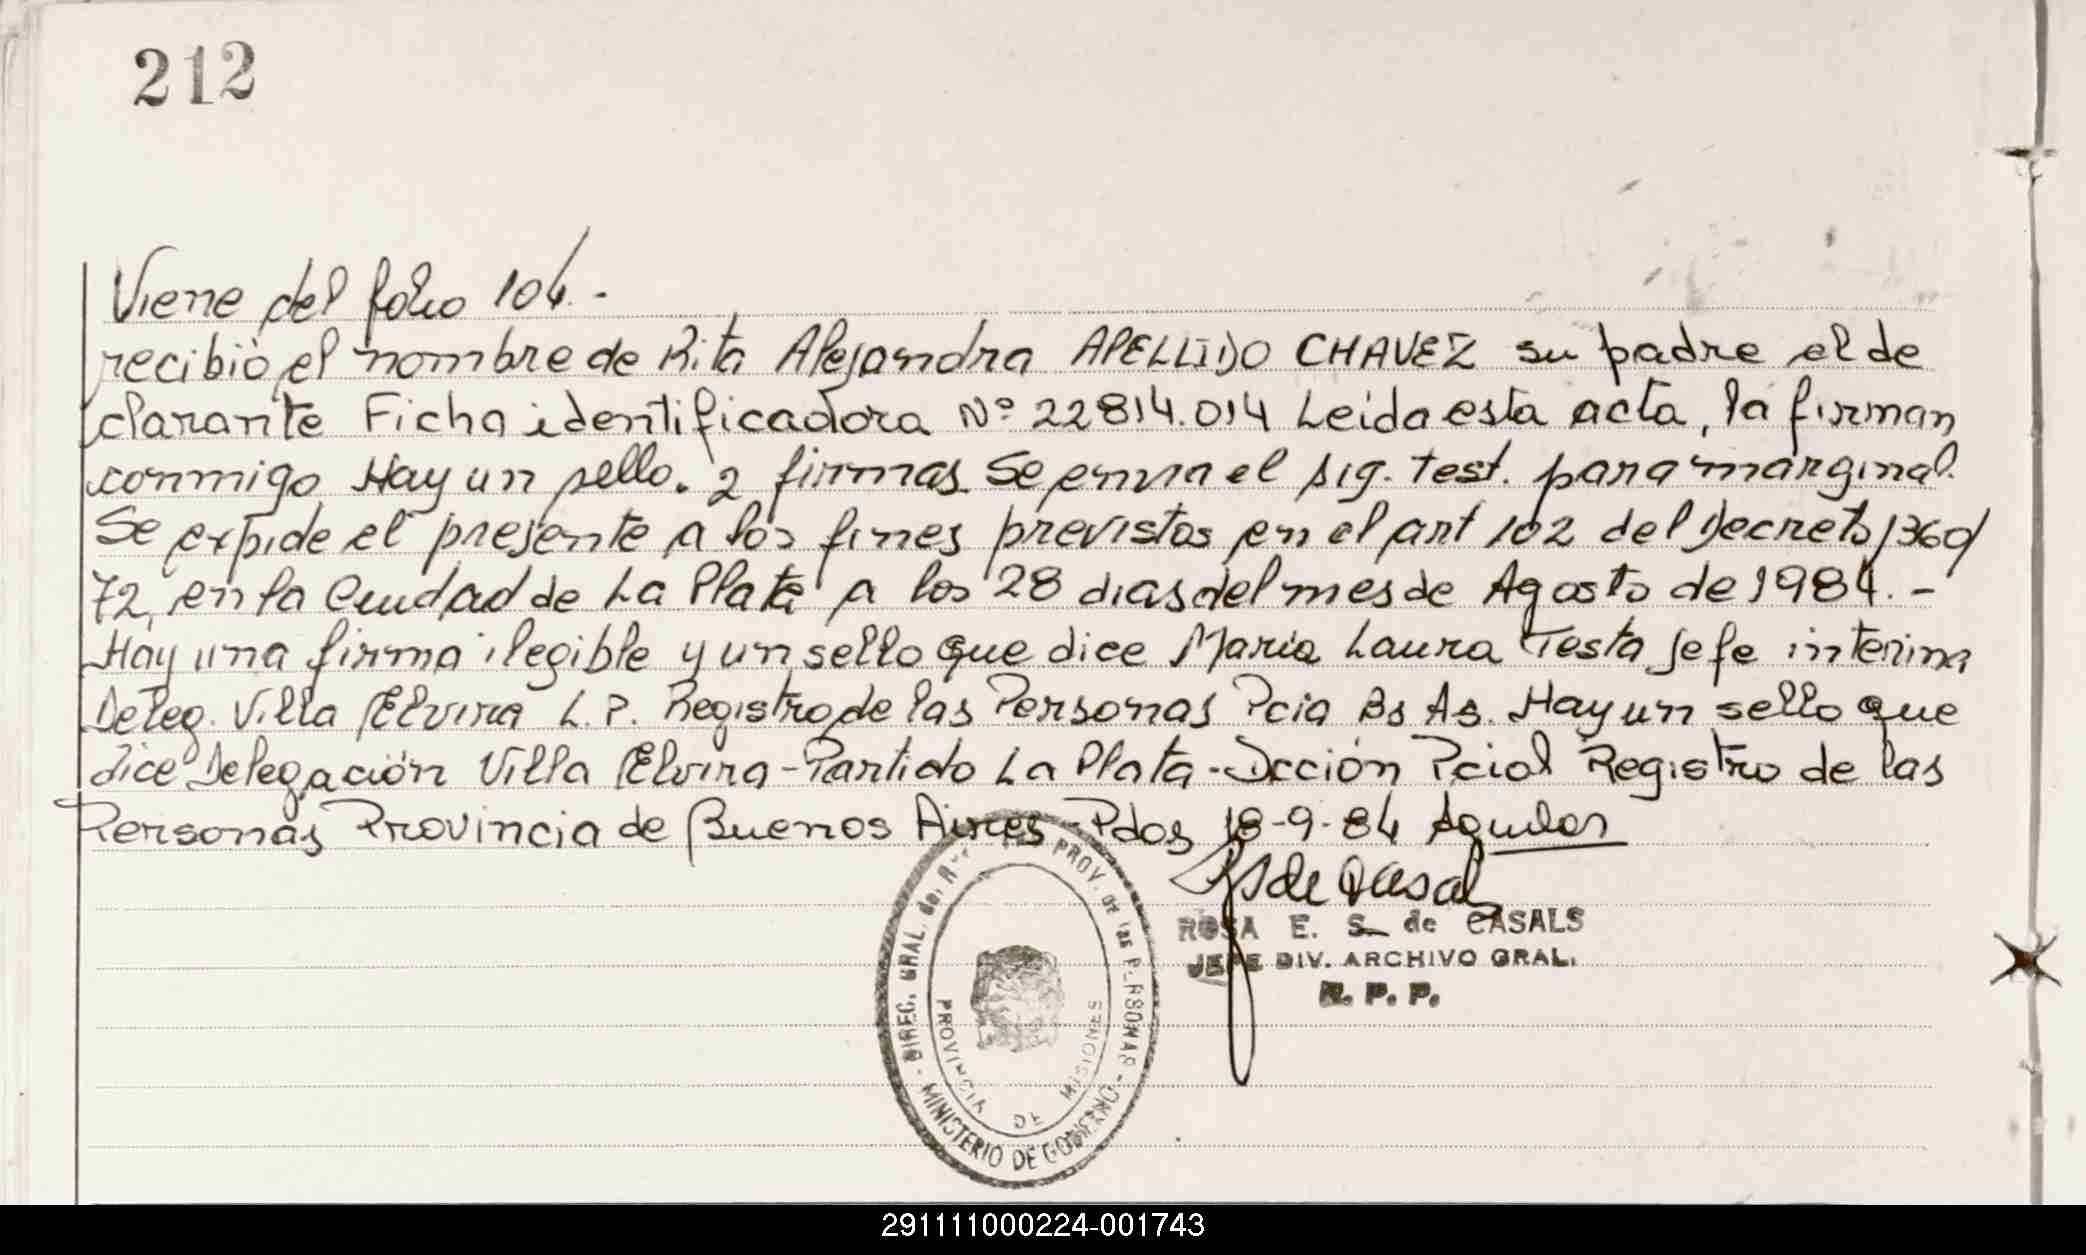 212
Viene del folio 104.-
recibió el nombre de Rita Alejandra APELLIDO CHAVEZ su padre el de
clarante Ficha identificadora Nº 22814.014 Leida esta acta, la firman
conmigo Hay un sello. 2 firmas. Se envia el sig. Test. para marginal.
Se expide el presente a los fines previstos en el art 102 del Decreto 1360/
72, en la Ciudad de La Plata a los 28 dias del mes de Agosto de 1984.-
Hay una firma ilegible y un sello que dice Maria Laura Testa Jefe interina
Deleg. Villa Elvira L.P. Registro de las Personas Pcia Bs As. Hay un sello que
dice Delegación Villa Elvira - Partido La Plata - Dcción Pcial Registro de las
Personas Provincia de Buenos Aires - Pdos 18-9-84 Aguilar
S de Casals
ROSA E. S. de CASALS
JEFE DIV. ARCHIVO GRAL.
R. P. P.
DIREC. GRAL. del PROV. de las PERSONAS -
PROVINCIA DE MISIONES
- MINISTERIO DE GOBIERNO -
291111000224-001743